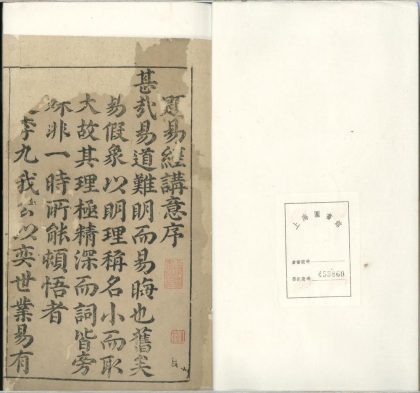 易經講意序
甚哉易道難明而易晦也舊矣
易假象以明理稱名小而取
大故其理極精深而詞皆旁
非一時所能頓悟者
李九我公以奕世業易有
上海圖書館